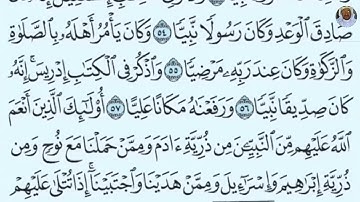 صَادِقَ ٱلْوَعْدِ وَكَانَ رَسُولًا نَّبِيًّا ٥٤ وَكَانَ يَأْمُرُ أَهْلَهُۥ بِٱلصَّلَوٰةِ
وَٱلزَّكَوٰةِ وَكَانَ عِندَ رَبِّهِۦ مَرْضِيًّا ٥٥ وَٱذْكُرْ فِى ٱلْكِتَٰبِ إِدْرِيسَ ۚ إِنَّهُۥ
كَانَ صِدِّيقًا نَّبِيًّا ٥٦ وَرَفَعْنَٰهُ مَكَانًا عَلِيًّا ٥٧ أُو۟لَٰٓئِكَ ٱلَّذِينَ أَنْعَمَ
ٱللَّهُ عَلَيْهِم مِّنَ ٱلنَّبِيِّـۧنَ مِن ذُرِّيَّةِ ءَادَمَ وَمِمَّنْ حَمَلْنَا مَعَ نُوحٍ وَمِن
ذُرِّيَّةِ إِبْرَٰهِيمَ وَإِسْرَٰٓءِيلَ وَمِمَّنْ هَدَيْنَا وَٱجْتَبَيْنَآ ۚ إِذَا تُتْلَىٰ عَلَيْهِمْ